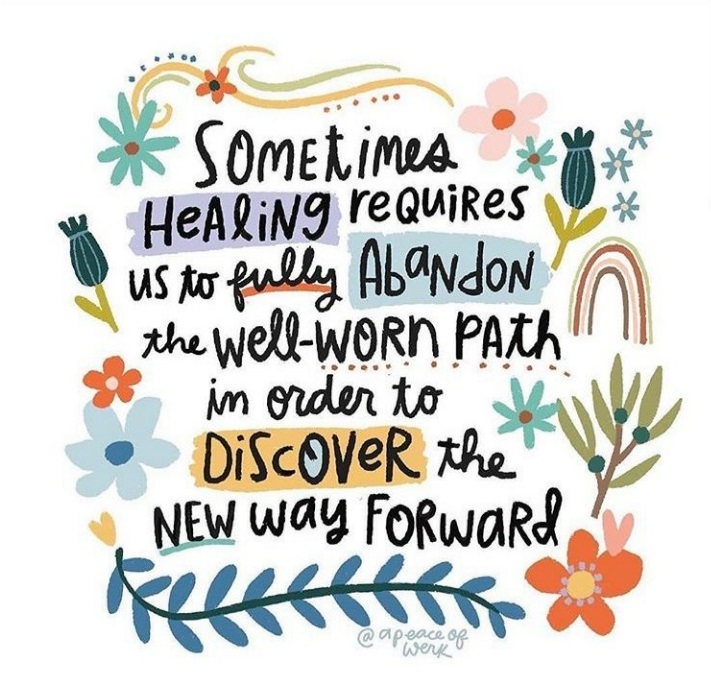 Sometimes
Healing requires
us to fully Abandon
the well-worn path
in order to
Discover the
New way Forward
@apeaceof
werk